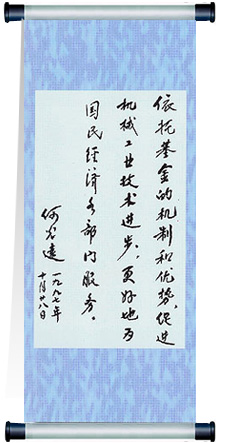 依托基金的机制和优势，促进
机械工业技术进步，更好地为
国民经济各部门服务。
何光远
一九九七年
十月廿八日